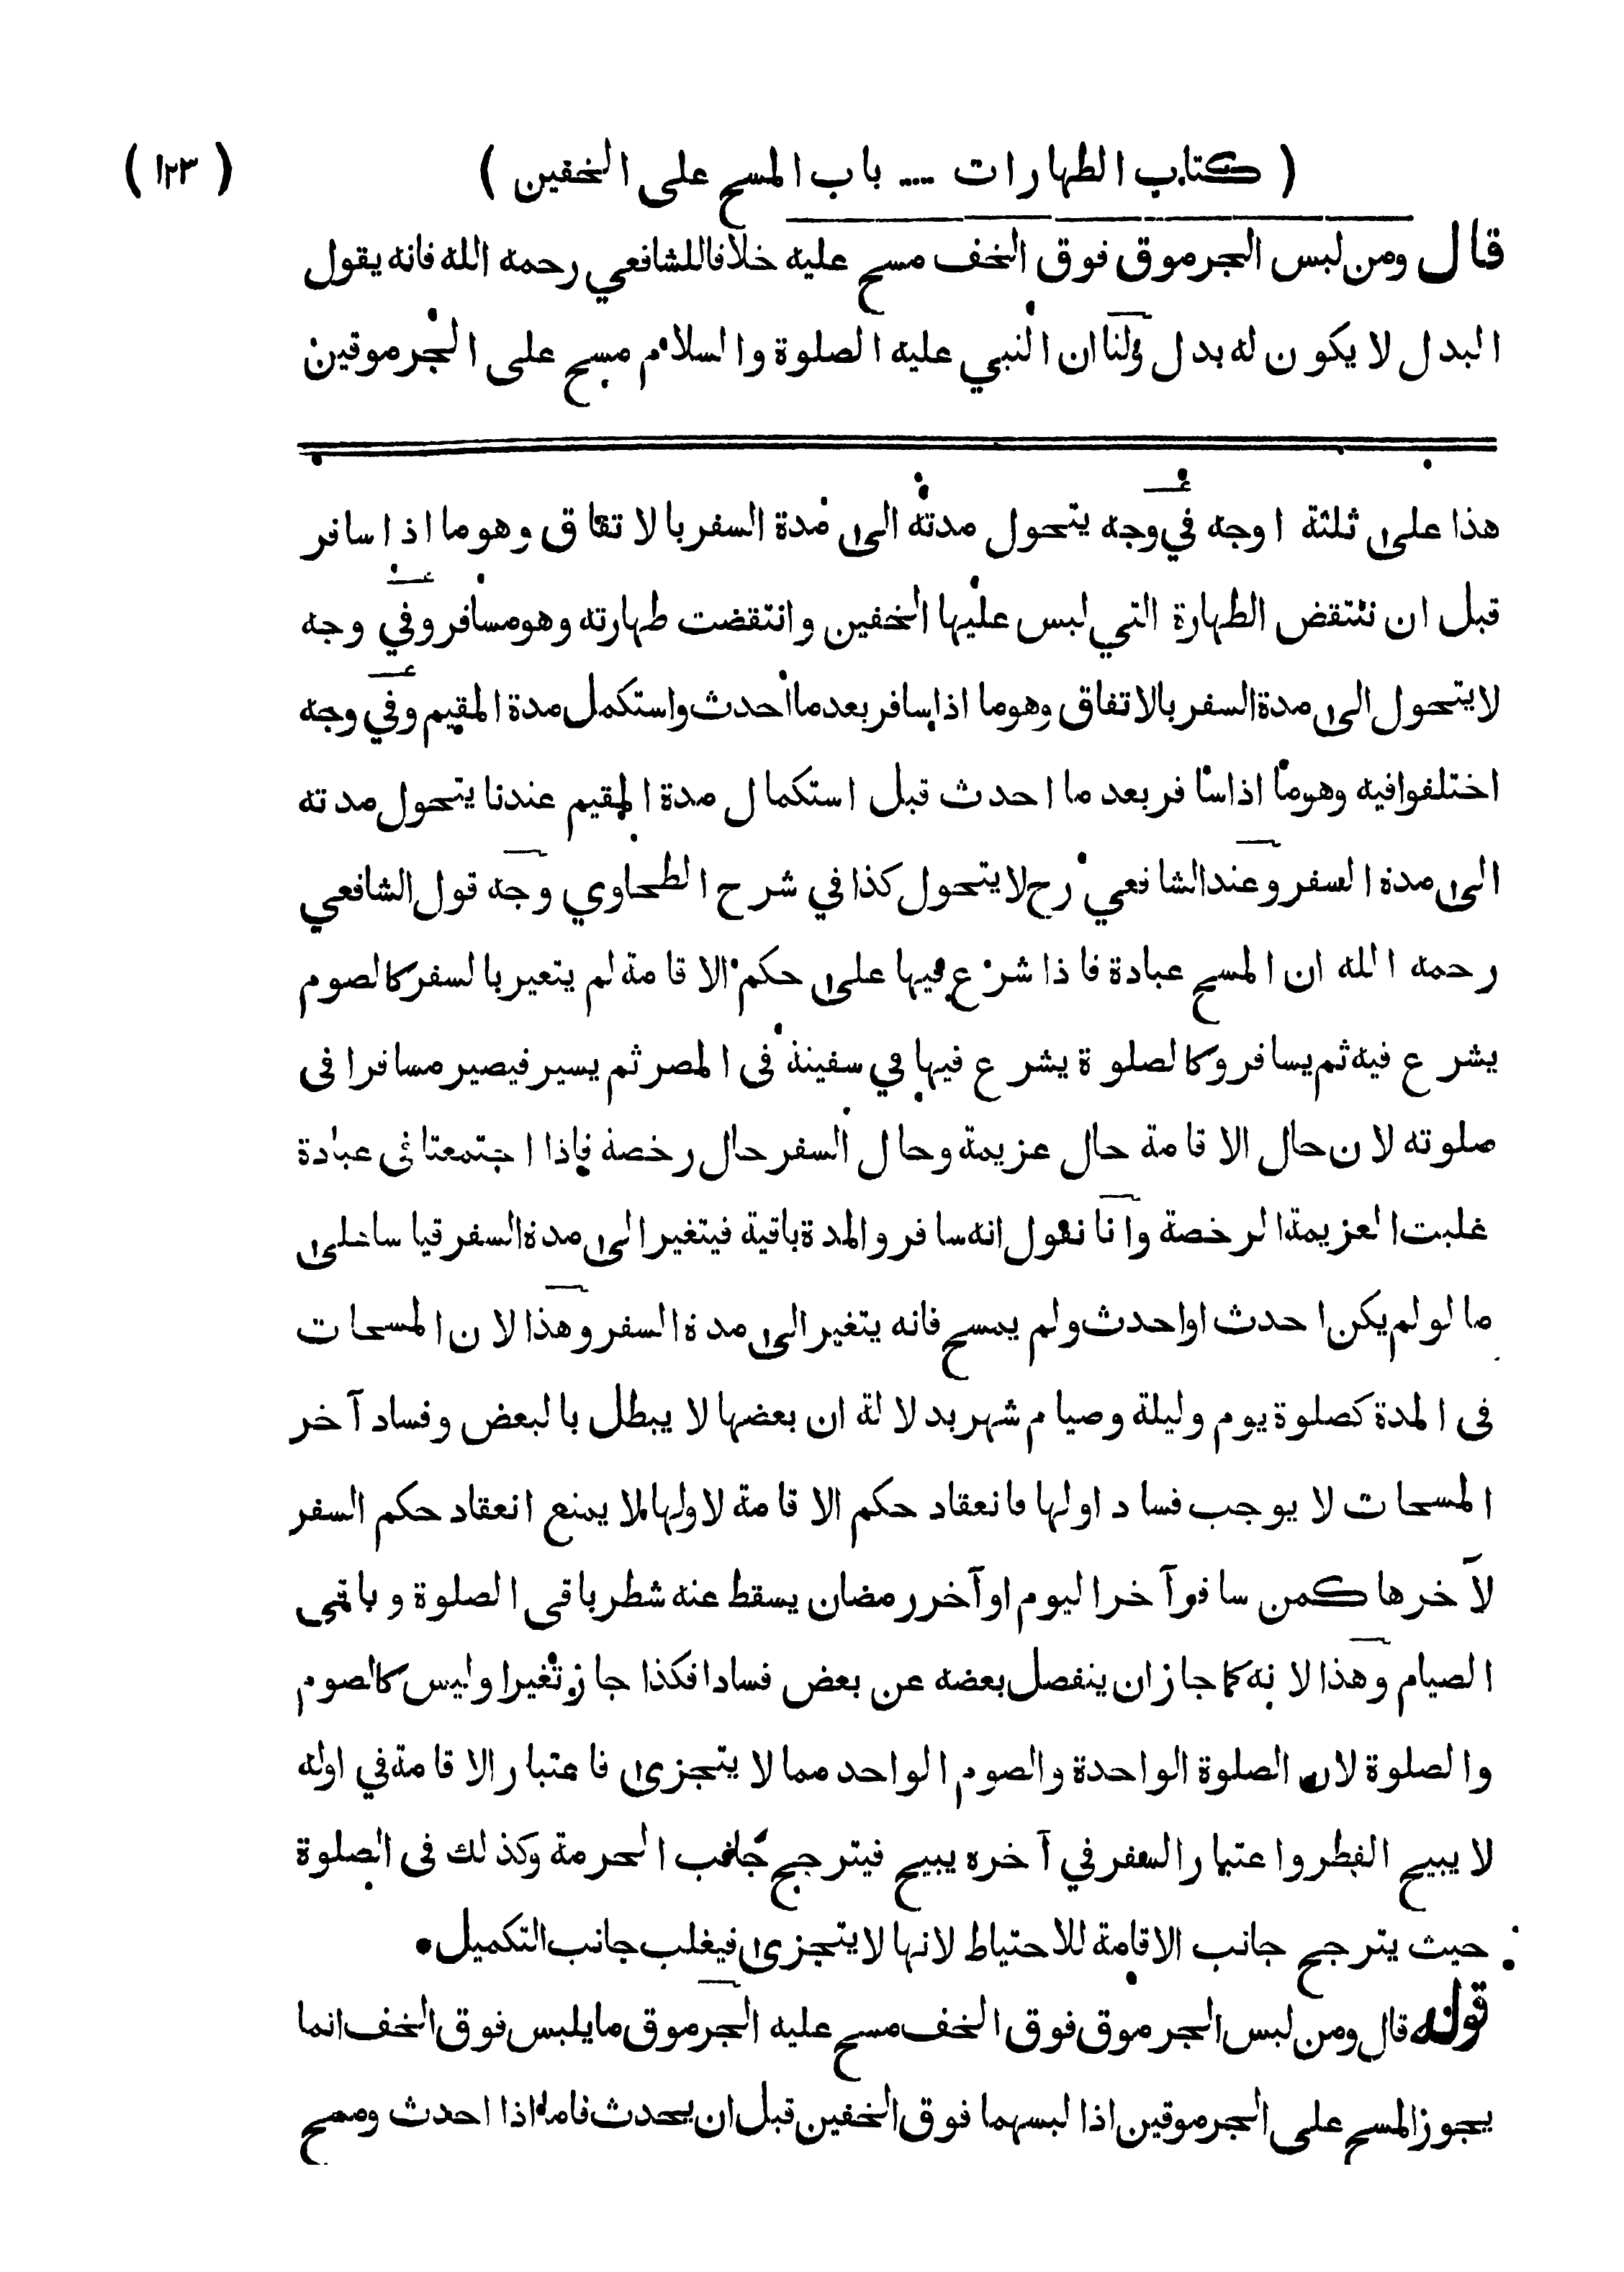 ( كتاب الطهارات .... باب المسح على الخفين ) ( ١٢٣ )
قال ومن لبس الجرموق فوق الخف مسح عليه خلافا للشافعي رحمه الله فانه يقول
البدل لا يكون له بدل ولنا ان النبي عليه الصلوة والسلام مسح على الجرموقين
هذا على ثلثة اوجه في وجه يتحول مدته الى مدة السفر بالاتفاق وهو ما اذا سافر
قبل ان تنتقض الطهارة التي لبس عليها الخفين وانتقضت طهارته وهو مسافر وفي وجه
لا يتحول الى مدة السفر بالاتفاق وهو ما اذا سافر بعد ما احدث واستكمل مدة المقيم وفي وجه
اختلفوا فيه وهو ما اذا سافر بعد ما احدث قبل استكمال مدة المقيم عندنا يتحول مدته
الى مدة السفر وعند الشافعي رح لا يتحول كذا في شرح الطحاوي وجه قول الشافعي
رحمه الله ان المسح عبادة فاذا شرع فيها على حكم الاقامة لم يتغير بالسفر كالصوم
يشرع فيه ثم يسافر وكالصلوة يشرع فيها في سفينة فى المصر ثم يسير فيصير مسافرا فى
صلوته لان حال الاقامة حال عزيمة وحال السفر حال رخصة فاذا اجتمعتا فى عبادة
غلبت العزيمة الرخصة وانا نقول انه سافر والمدة باقية فيتغير الى مدة السفر قياسا على
ما لو لم يكن احدث او احدث ولم يمسح فانه يتغير الى مدة السفر وهذا لان المسحات
فى المدة كصلوة يوم وليلة وصيام شهر بدلالة ان بعضها لا يبطل بالبعض وفساد آخر
المسحات لا يوجب فساد اولها فانعقاد حكم الاقامة لاولها لا يمنع انعقاد حكم السفر
لآخرها كمن سافر آخر اليوم او آخر رمضان يسقط عنه شطر باقى الصلوة وباقى
الصيام وهذا لانه كما جاز ان ينفصل بعضه عن بعض فسادا فكذا جاز تغيرا وليس كالصوم
والصلوة لان الصلوة الواحدة والصوم الواحد مما لا يتجزى فاعتبار الاقامة في اوله
لا يبيح الفطر واعتبار السفر في آخره يبيح فيترجح جانب الحرمة وكذلك فى الصلوة
حيث يترجح جانب الاقامة للاحتياط لانها لا يتجزى فيغلب جانب التكميل •
قوله قال ومن لبس الجرموق فوق الخف مسح عليه الجرموق ما يلبس فوق الخف انما
يجوز المسح على الجرموقين اذا لبسهما فوق الخفين قبل ان يحدث فاما اذا احدث ومسح